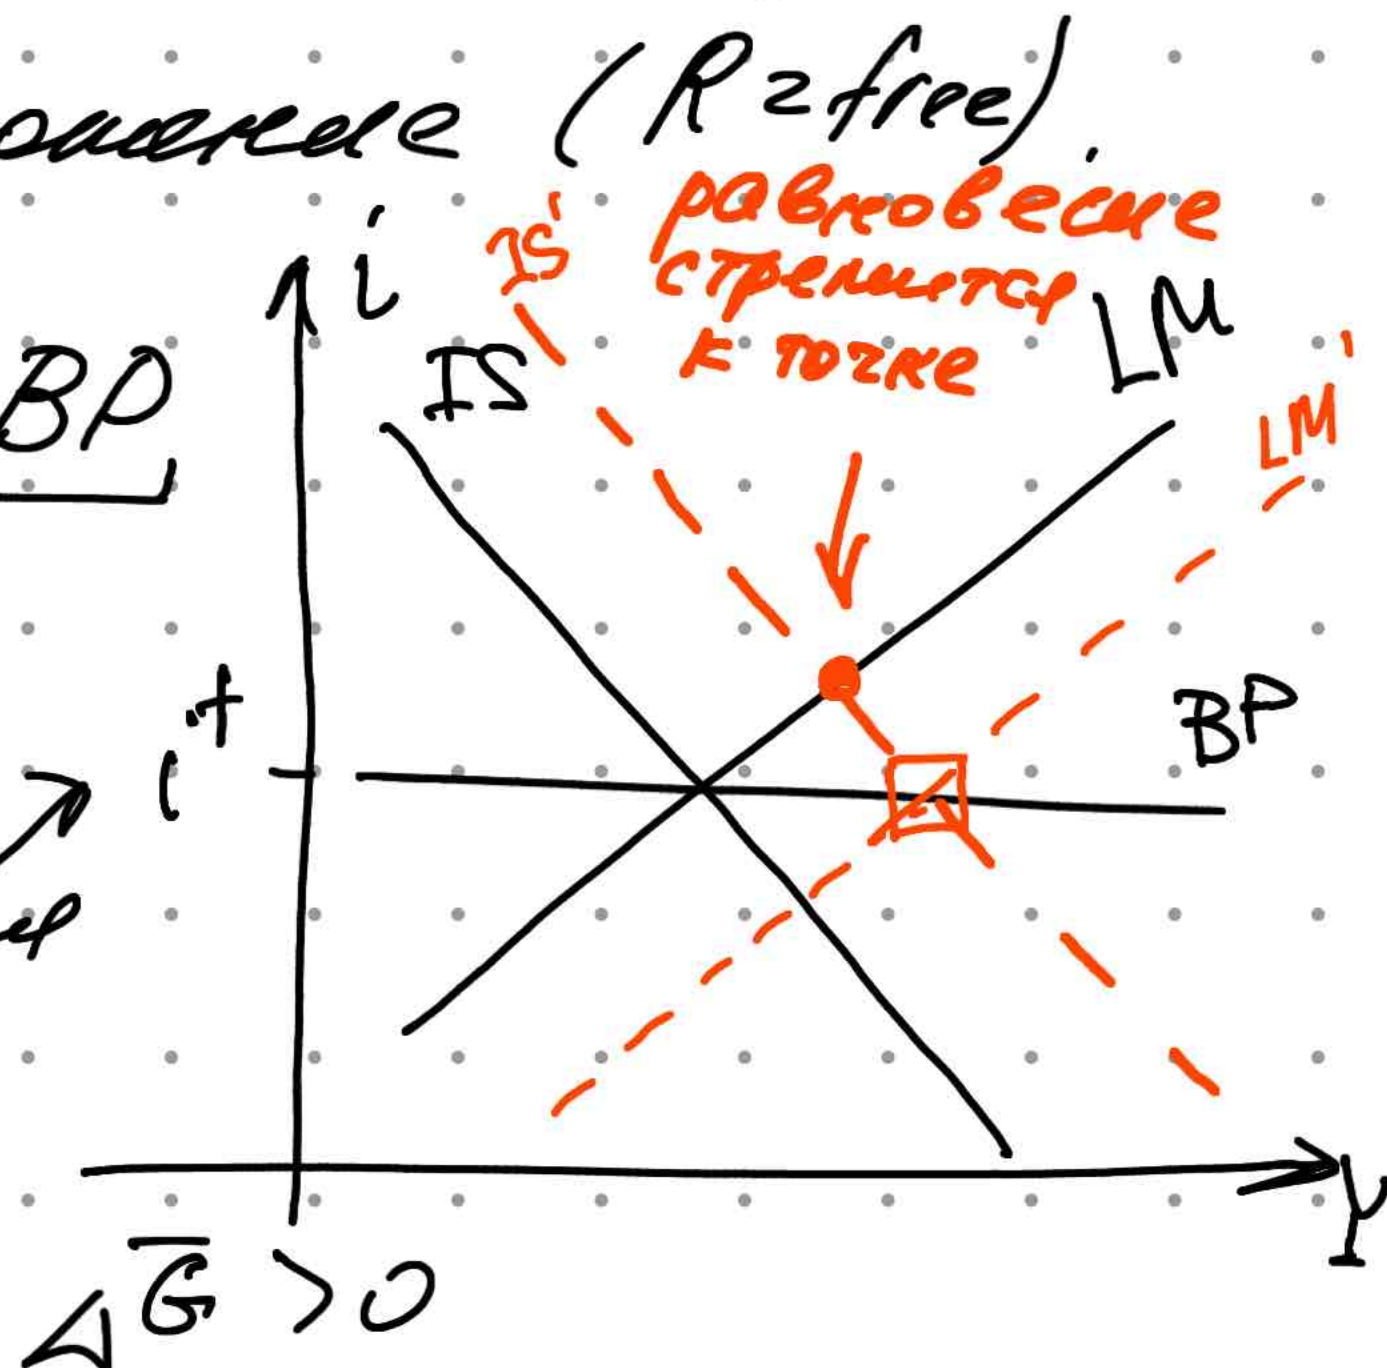 (R = free).
равновесие
стремится
к точке
i
IS'
IS
LM
LM'
BP
BP
i*
Y
ΔG̅ > 0